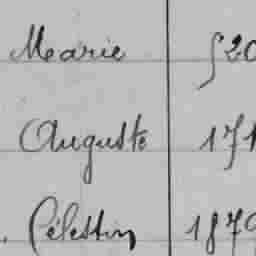 Marie 520
Auguste 171
Célestin 1879